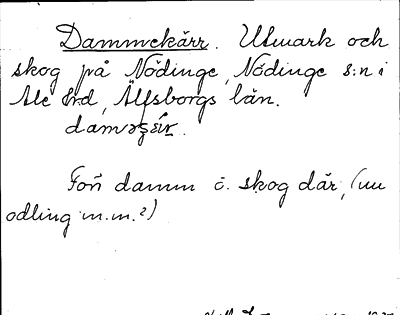 Dammekärr. Utmark och
skog på Nödinge, Nödinge s:n i
Ale hrd, Älfsborgs län.
Forñ damm o. skog där, (nu
odling m.m.?)